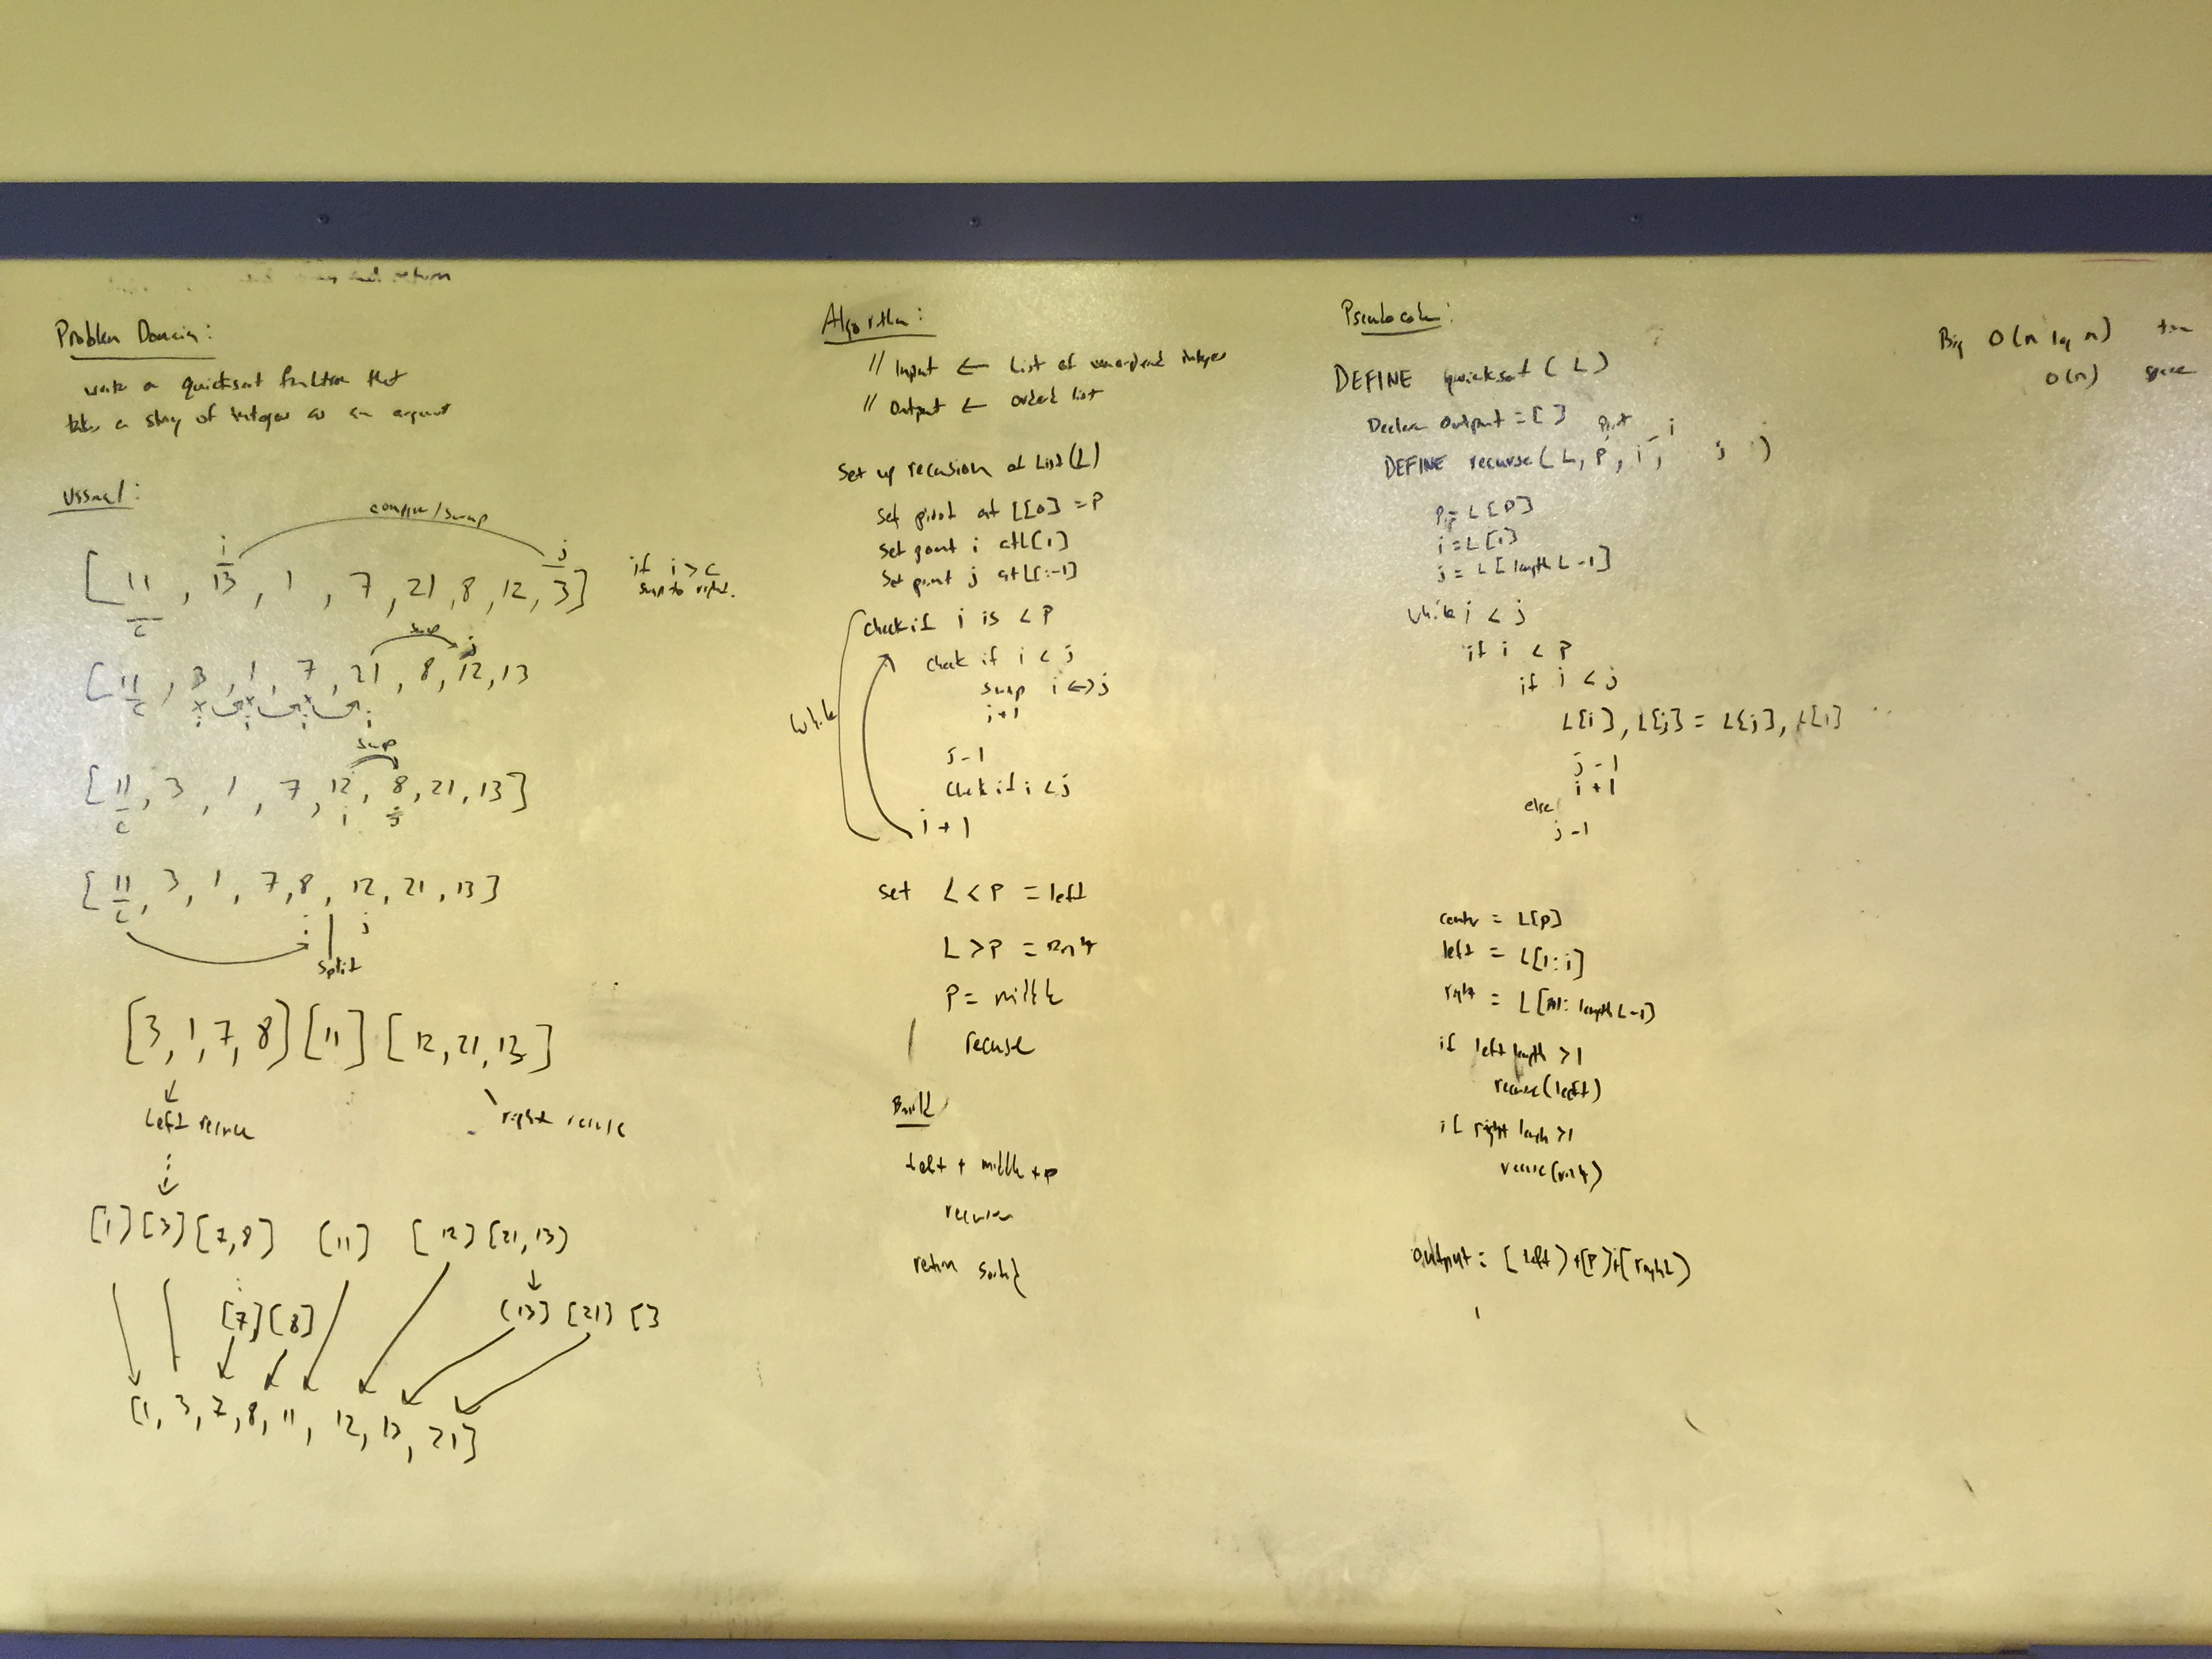 and return
Problem Domain:
write a quicksort function that
takes a array of integers as an argument
Visual:
compare/swap
i j
[11, 13, 1, 7, 21, 8, 12, 3]
c
if i > c
swap to right.
swap
j
[11, 3, 1, 7, 21, 8, 12, 13
c
i
swap
[11, 3, 1, 7, 12, 8, 21, 13]
c i j
[11, 3, 1, 7, 8, 12, 21, 13]
c i j
split
[3, 1, 7, 8] [11] [12, 21, 13]
left recurse
right recurse
[1] [3] [7, 8] [11] [12] [21, 13]
[7] [8]
[13] [21] [ ]
[1, 3, 7, 8, 11, 12, 13, 21]
Algorithm:
// Input ← List of unordered integer
// Output ← ordered list
Set up recursion of List(L)
Set pivot at L[0] = P
Set point i at L[1]
Set point j at L[:-1]
while
check if i is < P
check if i < j
swap i <-> j
i+1
j-1
check if i < j
i + 1
set L < P = left
L > P = right
P = middle
recurse
Build
left + middle + P
recursion
return sorted
Pseudocode:
DEFINE quicksort(L)
Declare Output = [ ]
DEFINE recurse(L, P, i, j)
P = L[0]
i = L[1]
j = L[length L -1]
while i < j
if i < P
if i < j
L[i], L[j] = L[j], L[i]
j -1
i +1
else
j -1
center = L[P]
left = L[1:i]
right = L[ : length L-1]
if left length > 1
recurse(left)
if right length > 1
recurse(right)
output = [left] + [P] + [right]
Big O(n log n) time
O(n) space